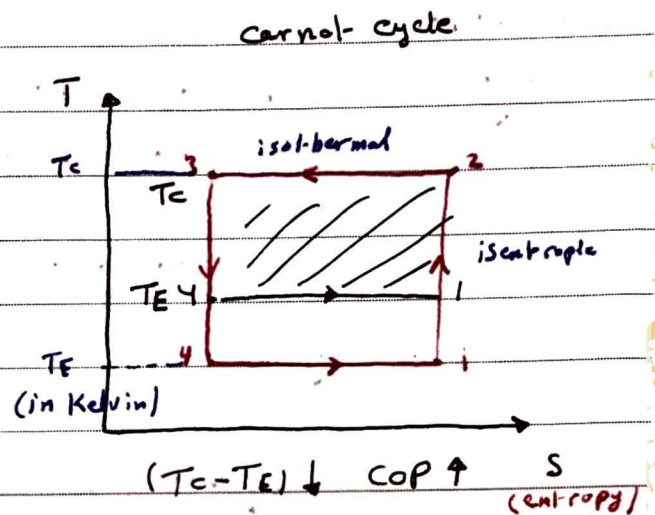 carnot cycle
T
isothermal
Tc 3 2
Tc
isentropic
TE 4 1
TE 4 1
(in Kelvin)
(Tc-TE)↓ COP↑ S
(entropy)